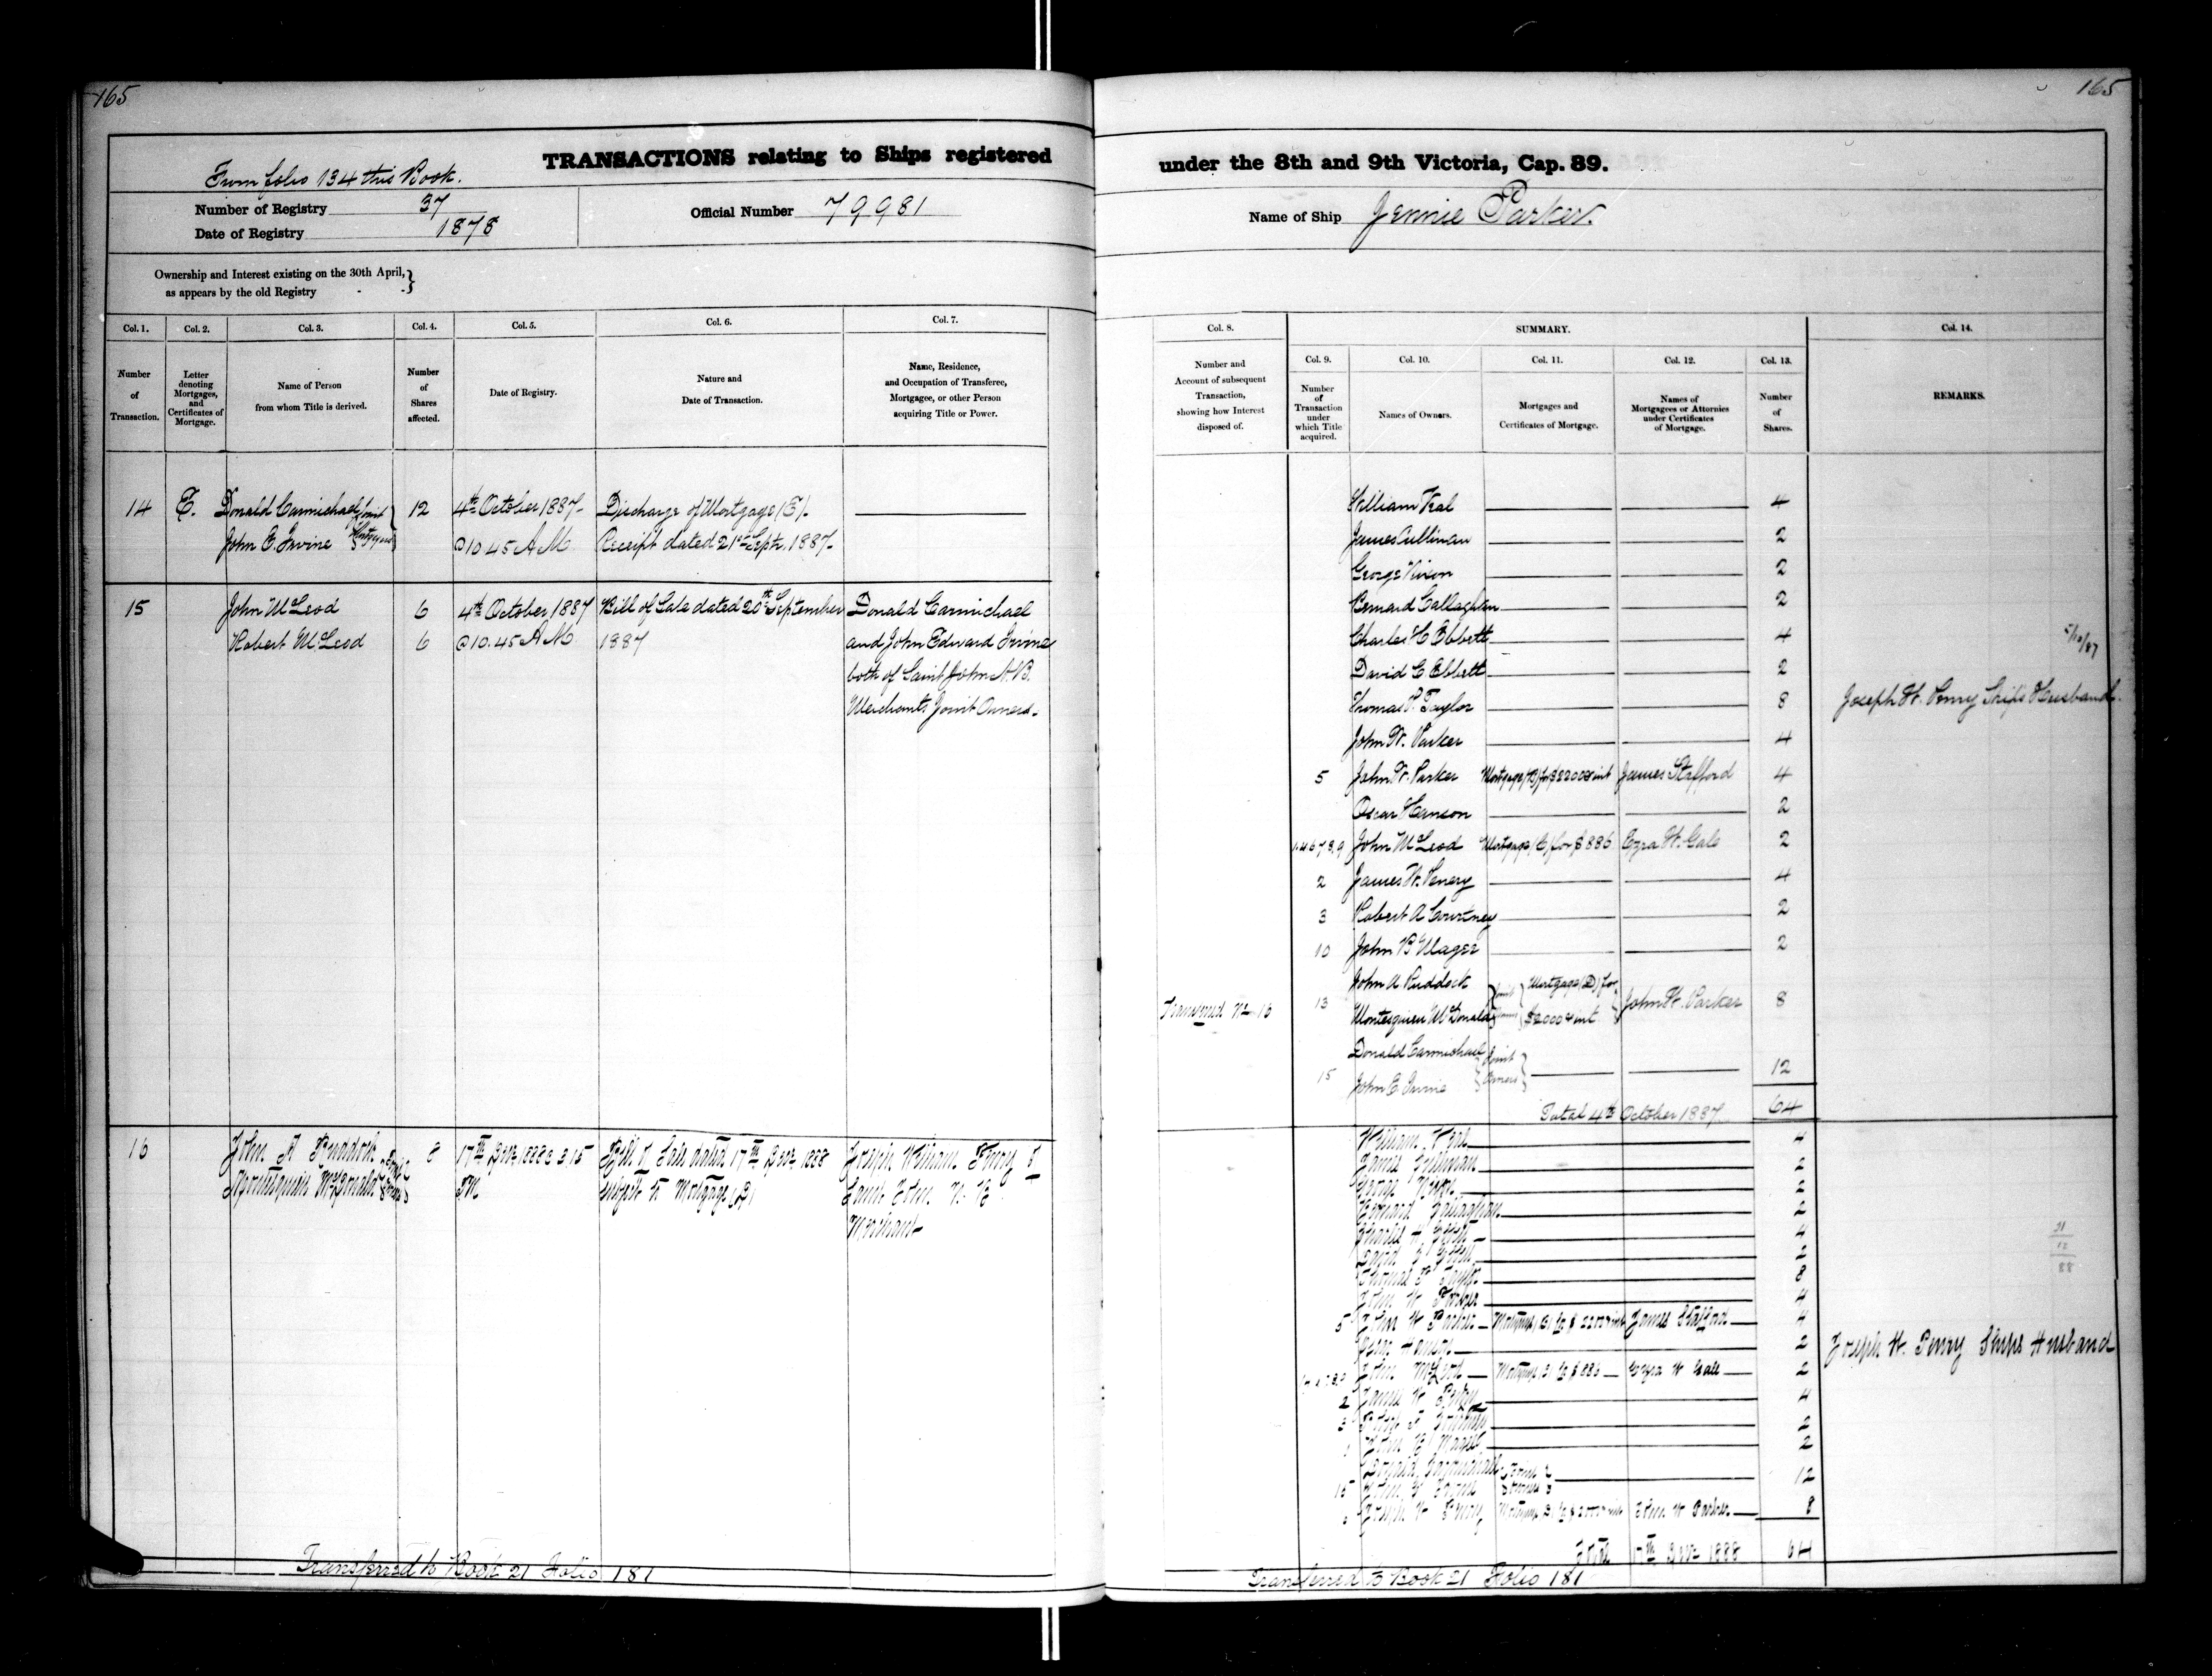 165
165
TRANSACTIONS relating to Ships registered
under the 8th and 9th Victoria, Cap. 89.
From folio 134 this Book.
Number of Registry 37
Date of Registry 1878
Official Number 79981
Name of Ship Jennie Parker.
Ownership and Interest existing on the 30th April,
as appears by the old Registry
Col. 1.
Number
of
Transaction.
Col. 2.
Letter
denoting
Mortgages,
and
Certificates of
Mortgage.
Col. 3.
Name of Person
from whom Title is derived.
Col. 4.
Number
of
Shares
affected.
Col. 5.
Date of Registry.
Col. 6.
Nature and
Date of Transaction.
Col. 7.
Name, Residence,
and Occupation of Transferee,
Mortgagee, or other Person
acquiring Title or Power.
Col. 8.
Number and
Account of subsequent
Transaction,
showing how Interest
disposed of.
SUMMARY.
Col. 9.
Number
of
Transaction
under
which Title
acquired.
Col. 10.
Names of Owners.
Col. 11.
Mortgages and
Certificates of Mortgage.
Col. 12.
Names of
Mortgagees or Attornies
under Certificates
of Mortgage.
Col. 13.
Number
of
Shares.
Col. 14.
REMARKS.
14 E. Donald Carmichael Joint 12 4th October 1887 Discharge of Mortgage (E).
John E. Irvine Mortgagees @ 10.45 A.M. Receipt dated 21st Sept. 1887
15 John McLeod 6 4th October 1887 Bill of Sale dated 20th September Donald Carmichael
Robert McLeod 6 @ 10.45 A.M. 1887 and John Edward Irvine
both of Saint John N.B.
Merchants Joint Owners.
16 John A Ruddock Joint 8 17th Decr 1888 @ 3.15 Bill of Sale dated 17th Decr 1888 Joseph William
Montesquieu McDonald Owners PM subject to Mortgage (D) Saint John N. B.
Merchant
Transferred to Book 21 Folio 181
William Veal 4
James Cullinan 2
George Nixon 2
Bernard Callaghan 2
Charles H Ebbett 4
5/10/87
David C Ebbett 2
Thomas P. Taylor 8 Joseph W. Ship's Husband.
John W. Parker 4
5 John W. Parker Mortgage (B) for $2200 & int James Stafford 4
Oscar Hanson 2
1.4.6.7.8.9 John McLeod Mortgage (C) for $886 Ezra W. Gale 2
2 James W. 4
3 Robert A Courtney 2
10 John B Magee 2
John A Ruddock Mortgage (D) for
Transferred No 16 13 Montesquieu McDonald Joint Owners $2000 & int John W. Parker 8
Donald Carmichael Joint
15 John E. Irvine Owners 12
Total 4th October 1887 64
William Veal 4
James Cullinan 2
George Nixon 2
Bernard Callaghan 2
Charles H Ebbett 4
David C Ebbett 2
21
12
88
Thomas P Taylor 8
John W Parker 4
5 John W Parker Mortgage (B) for $2200 & int James Stafford 4
Oscar Hanson 2 Joseph W. Ships Husband
John McLeod Mortgage C for $886 Ezra W Gale 2
2 James W 4
3 Courtney 2
John B Magee 2
Donald Carmichael Joint
15 John E Irvine Owners 12
Joseph W Mortgage D for $2000 & int John W Parker 8
Total 17th Decr 1888 64
Transferred to Book 21 Folio 181